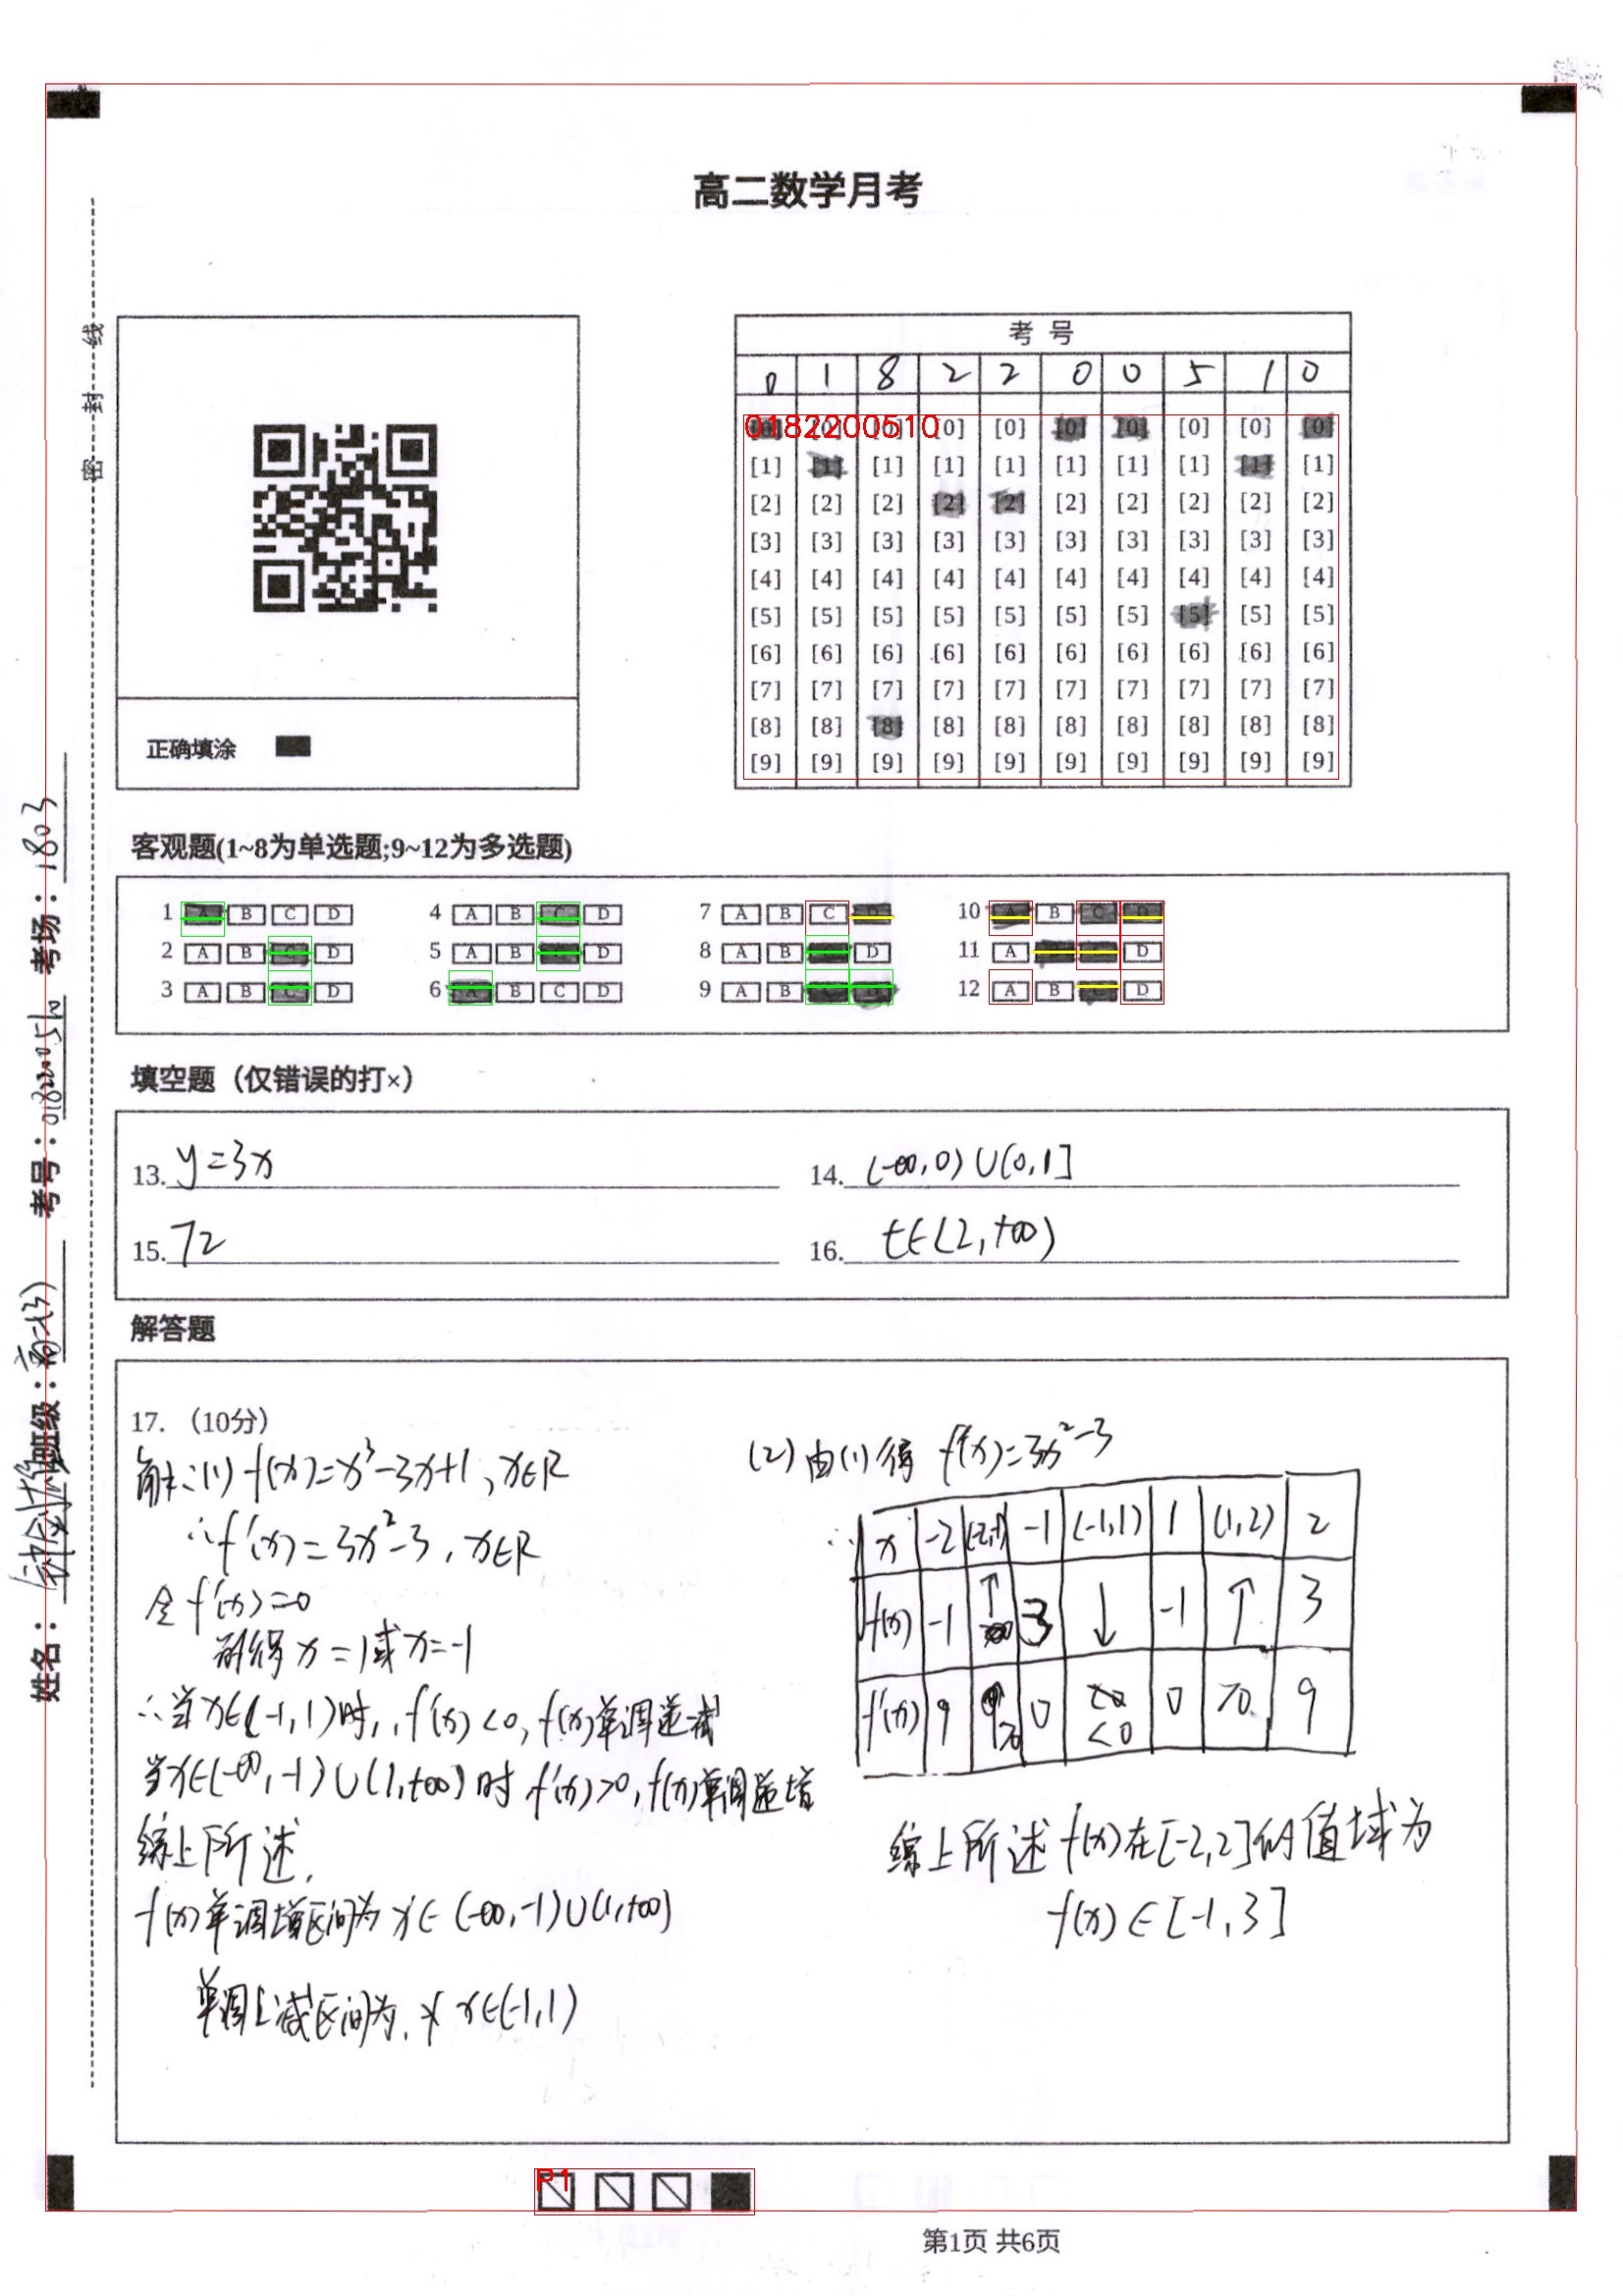 高二数学月考
密 封 线
姓名：
班级：高二(3)
考号：0182200510
考场：1803
正确填涂
考 号
0 1 8 2 2 0 0 5 1 0
0182200510
[0] [0] [0] [0] [0] [0] [0] [0] [0] [0]
[1] [1] [1] [1] [1] [1] [1] [1] [1] [1]
[2] [2] [2] [2] [2] [2] [2] [2] [2] [2]
[3] [3] [3] [3] [3] [3] [3] [3] [3] [3]
[4] [4] [4] [4] [4] [4] [4] [4] [4] [4]
[5] [5] [5] [5] [5] [5] [5] [5] [5] [5]
[6] [6] [6] [6] [6] [6] [6] [6] [6] [6]
[7] [7] [7] [7] [7] [7] [7] [7] [7] [7]
[8] [8] [8] [8] [8] [8] [8] [8] [8] [8]
[9] [9] [9] [9] [9] [9] [9] [9] [9] [9]
客观题(1~8为单选题;9~12为多选题)
1 A B C D 4 A B C D 7 A B C D 10 A B C D
2 A B C D 5 A B C D 8 A B C D 11 A B C D
3 A B C D 6 A B C D 9 A B C D 12 A B C D
填空题（仅错误的打×）
13. y=3x 14. (-∞,0)∪(0,1]
15. 72 16. t∈(2,+∞)
解答题
17.（10分）
解:(1) f(x)=x³-3x+1, x∈R
∴f'(x)=3x²-3, x∈R
令f'(x)=0
解得x=1或x=-1
∴当x∈(-1,1)时, f'(x)<0, f(x)单调递减
当x∈(-∞,-1)∪(1,+∞)时 f'(x)>0, f(x)单调递增
综上所述,
f(x)单调增区间为x∈(-∞,-1)∪(1,+∞)
单调减区间为, x∈(-1,1)
(2)由(1)得 f'(x)=3x²-3
∴ x -2 (-2,-1) -1 (-1,1) 1 (1,2) 2
f(x) -1 ↑ 3 ↓ -1 ↑ 3
f'(x) 9 >0 0 <0 0 >0 9
综上所述f(x)在[-2,2]的值域为
f(x)∈[-1,3]
P1
第1页 共6页